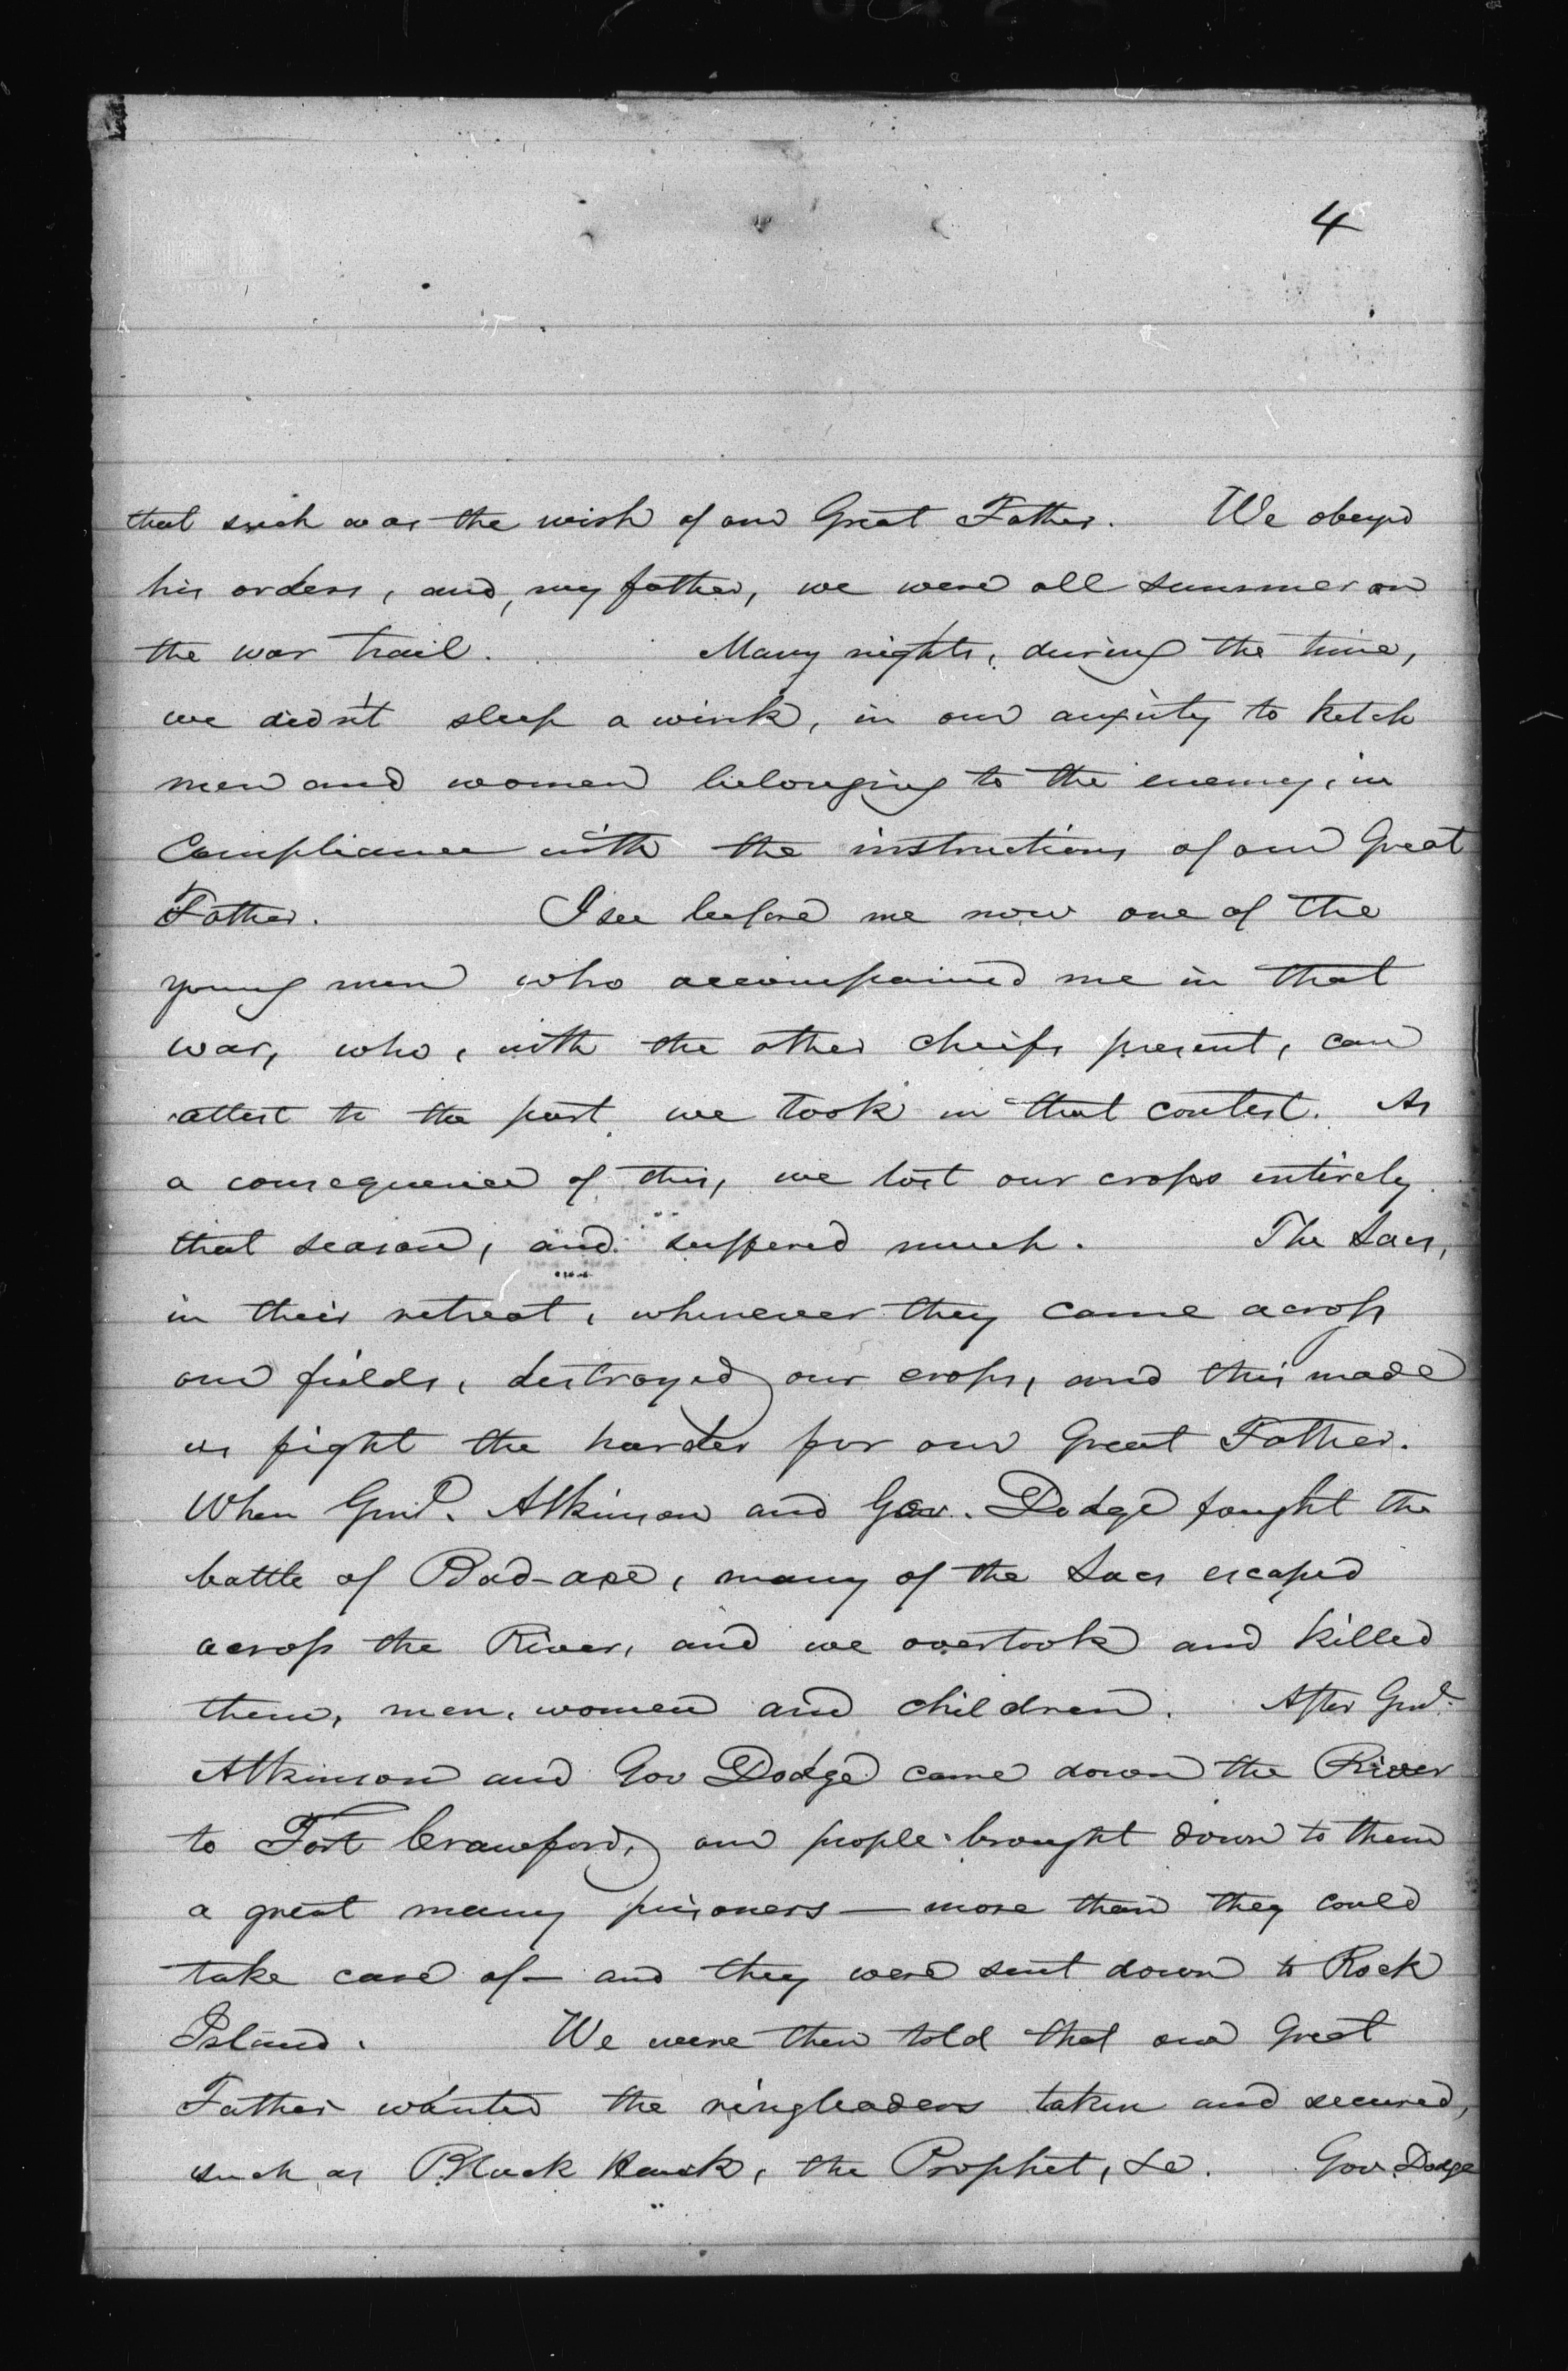 4
that such was the wish of our Great Father. We obeyed
his orders, and, my father, we were all summer on
the war trail. Many nights, during the time,
we did n't sleep a wink, in our anxiety to ketch
men and women belonging to the enemy, in
compliance with the instructions of our Great
Father. I see before me now one of the
young men who accompained me in that
war, who, with the other cheifs present, can
attest to the part we took in that contest. As
a consequence of this, we lost our crops entirely
that season, and suffered much. The Sacs,
in their retreat, whenever they came across
our fields, destroyed our crops, and this made
us fight the harder for our Great Father.
When Genl. Atkinson and Gov. Dodge fought the
battle of Bad-axe, many of the Sacs escaped
across the River, and we overtook and killed
them, men, women and children. After Genl.
Atkinson and Gov Dodge came down the River
to Fort Crawford, our people brought down to them
a great many prisoners — more than they could
take care of — and they were sent down to Rock
Island. We were then told that our Great
Father wanted the ringleaders taken and secured,
such as Black Hawk, the Prophet, &c. Gov. Dodge